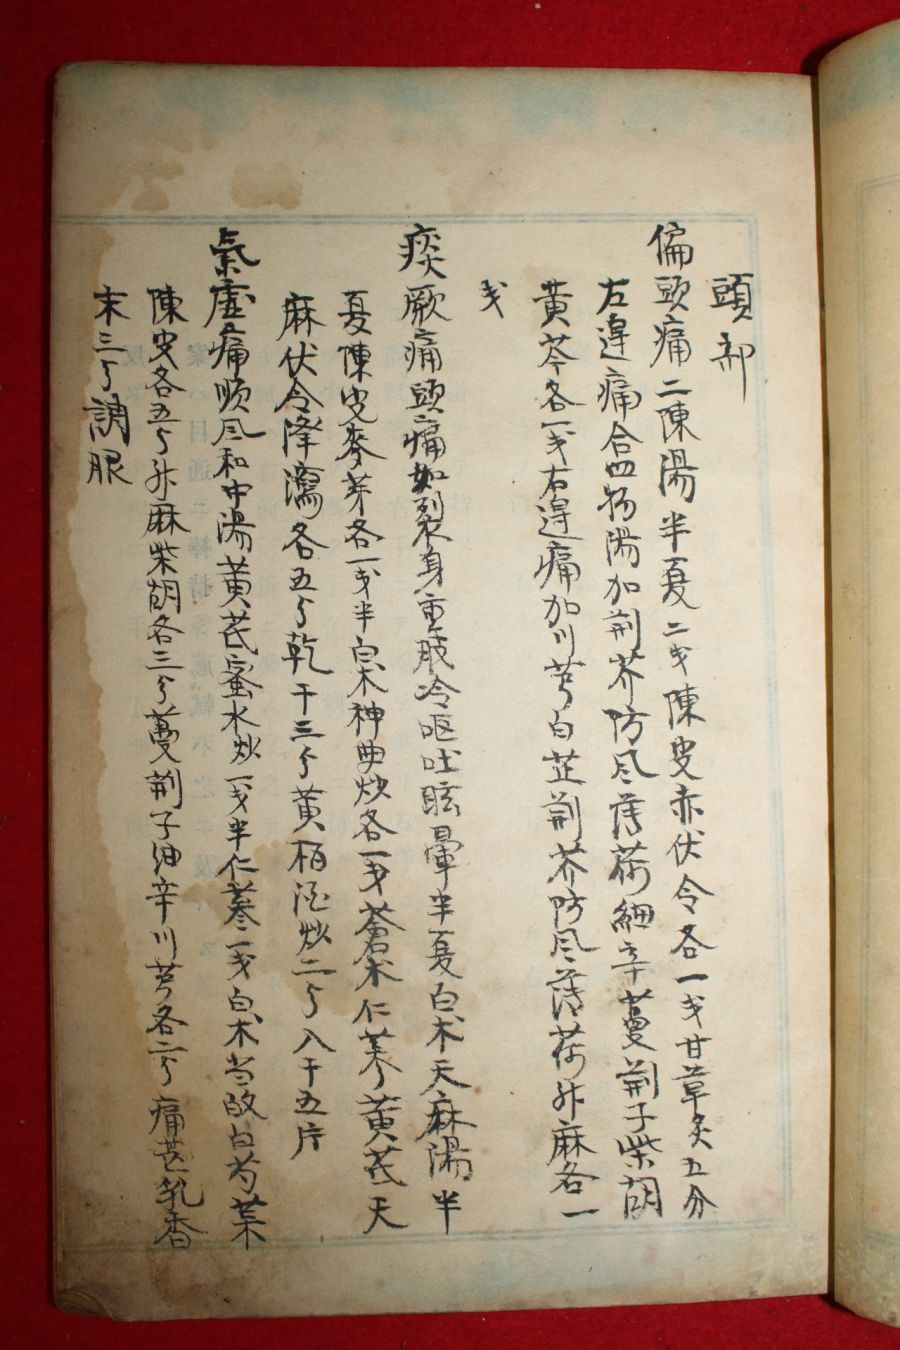 頭部
偏頭痛二陳湯半夏二戔陳皮赤伏令各一戔甘草灸五分
左邊痛合四物湯加荊芥防风薄荷細辛蔓荊子柴胡
黃芩各一戔右邊痛加川芎白芷荊芥防风薄荷升麻各一
戔
痰厥痛頭痛如裂身重肢冷呕吐眩暈半夏白朮天麻湯半
夏陳皮麥芽各一戔半白朮神曲炒各一戔蒼朮仁蔘黃芪天
麻伏令澤瀉各五分乾干三分黃栢酒炒二分入干五片
氣虛痛順风和中湯黃芪蜜水炒一戔半仁蔘一戔白朮当故白芍葉
陳皮各五分升麻柴胡各三分蔓荊子細辛川芎各二分痛甚乳香
末三分調服